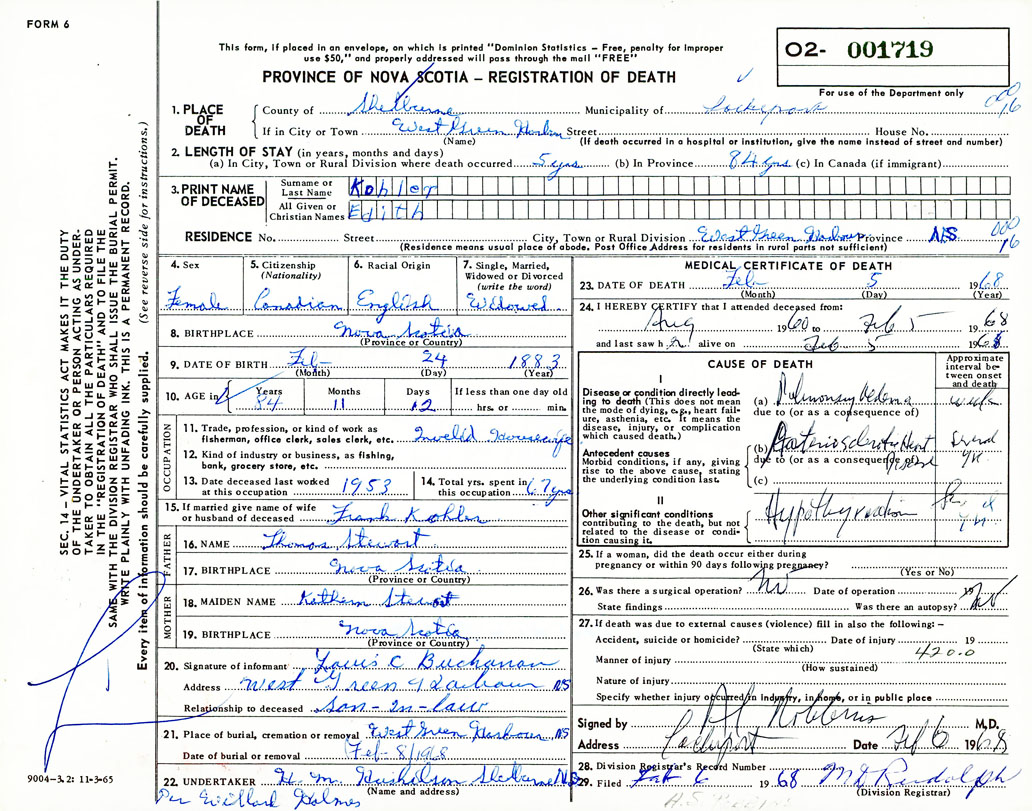 FORM 6
This form, if placed in an envelope, on which is printed "Dominion Statistics – Free, penalty for improper
use $50," and properly addressed will pass through the mail "FREE"
PROVINCE OF NOVA SCOTIA – REGISTRATION OF DEATH
02- 001719
For use of the Department only
1. PLACE OF DEATH
County of Shelburne Municipality of Lockeport
000 16
If in City or Town West Green Harbor Street House No.
(Name) (If death occurred in a hospital or institution, give the name instead of street and number)
2. LENGTH OF STAY (in years, months and days)
(a) In City, Town or Rural Division where death occurred 5 yrs (b) In Province 84 yrs (c) In Canada (if immigrant)
3. PRINT NAME OF DECEASED
Surname or Last Name Kohler
All Given or Christian Names Edith
RESIDENCE No. Street City, Town or Rural Division West Green Harbour Province N.S. 000 16
(Residence means usual place of abode. Post Office Address for residents in rural parts not sufficient)
4. Sex
Female
5. Citizenship
(Nationality)
Canadian
6. Racial Origin
English
7. Single, Married,
Widowed or Divorced
(write the word)
Widowed
8. BIRTHPLACE Nova Scotia
(Province or Country)
9. DATE OF BIRTH Feb- 24 1883
(Month) (Day) (Year)
10. AGE in Years Months Days If less than one day old
84 11 12 hrs. or min.
OCCUPATION
11. Trade, profession, or kind of work as
fisherman, office clerk, sales clerk, etc. Invalid Housewife
12. Kind of industry or business, as fishing,
bank, grocery store, etc.
13. Date deceased last worked
at this occupation 1953
14. Total yrs. spent in
this occupation 67 yrs
15. If married give name of wife
or husband of deceased Frank Kohler
FATHER
16. NAME Thomas Stewart
17. BIRTHPLACE Nova Scotia
(Province or Country)
MOTHER
18. MAIDEN NAME Kathern Stewart
19. BIRTHPLACE Nova Scotia
(Province or Country)
20. Signature of informant Louis C Buchanan
Address West Green Harbour NS
Relationship to deceased Son-in-law
21. Place of burial, cremation or removal West Green Harbour NS
Date of burial or removal Feb-8/1968
22. UNDERTAKER H. M. Huskilson Shelburne N.S.
(Name and address)
Per Willard Holmes
MEDICAL CERTIFICATE OF DEATH
23. DATE OF DEATH Feb 5 1968
(Month) (Day) (Year)
24. I HEREBY CERTIFY that I attended deceased from:
Aug 1960 to Feb 5 1968
and last saw her alive on Feb 5 1968
CAUSE OF DEATH
Approximate
interval be-
tween onset
and death
I
Disease or condition directly lead-
ing to death (This does not mean
the mode of dying, e.g., heart fail-
ure, asthenia, etc. It means the
disease, injury, or complication
which caused death.)
(a) Pulmonary Oedema
due to (or as a consequence of)
Antecedent causes
Morbid conditions, if any, giving
rise to the above cause, stating
the underlying condition last.
(b) Arteriosclerotic Heart Disease Several yrs.
due to (or as a consequence of)
(c)
II
Other significant conditions
contributing to the death, but not
related to the disease or condi-
tion causing it.
25. If a woman, did the death occur either during
pregnancy or within 90 days following pregnancy?
(Yes or No)
26. Was there a surgical operation? No Date of operation 19
State findings Was there an autopsy? No
27. If death was due to external causes (violence) fill in also the following: –
Accident, suicide or homicide? Date of injury 19
(State which) 420.0
Manner of injury
(How sustained)
Nature of injury
Specify whether injury occurred in industry, in home, or in public place
Signed by Robbins M.D.
Address Lockeport Date Feb 6 1968
28. Division Registrar's Record Number
29. Filed Feb 6 1968 M D Rudolph
(Division Registrar)
SEC. 14 – VITAL STATISTICS ACT MAKES IT THE DUTY
OF THE UNDERTAKER OR PERSON ACTING AS UNDER-
TAKER TO OBTAIN ALL THE PARTICULARS REQUIRED
IN THE "REGISTRATION OF DEATH" AND TO FILE THE
SAME WITH THE DIVISION REGISTRAR WHO SHALL ISSUE THE BURIAL PERMIT.
WRITE PLAINLY WITH UNFADING INK. THIS IS A PERMANENT RECORD.
Every item of information should be carefully supplied. (See reverse side for instructions.)
9004-3.2: 11-3-65